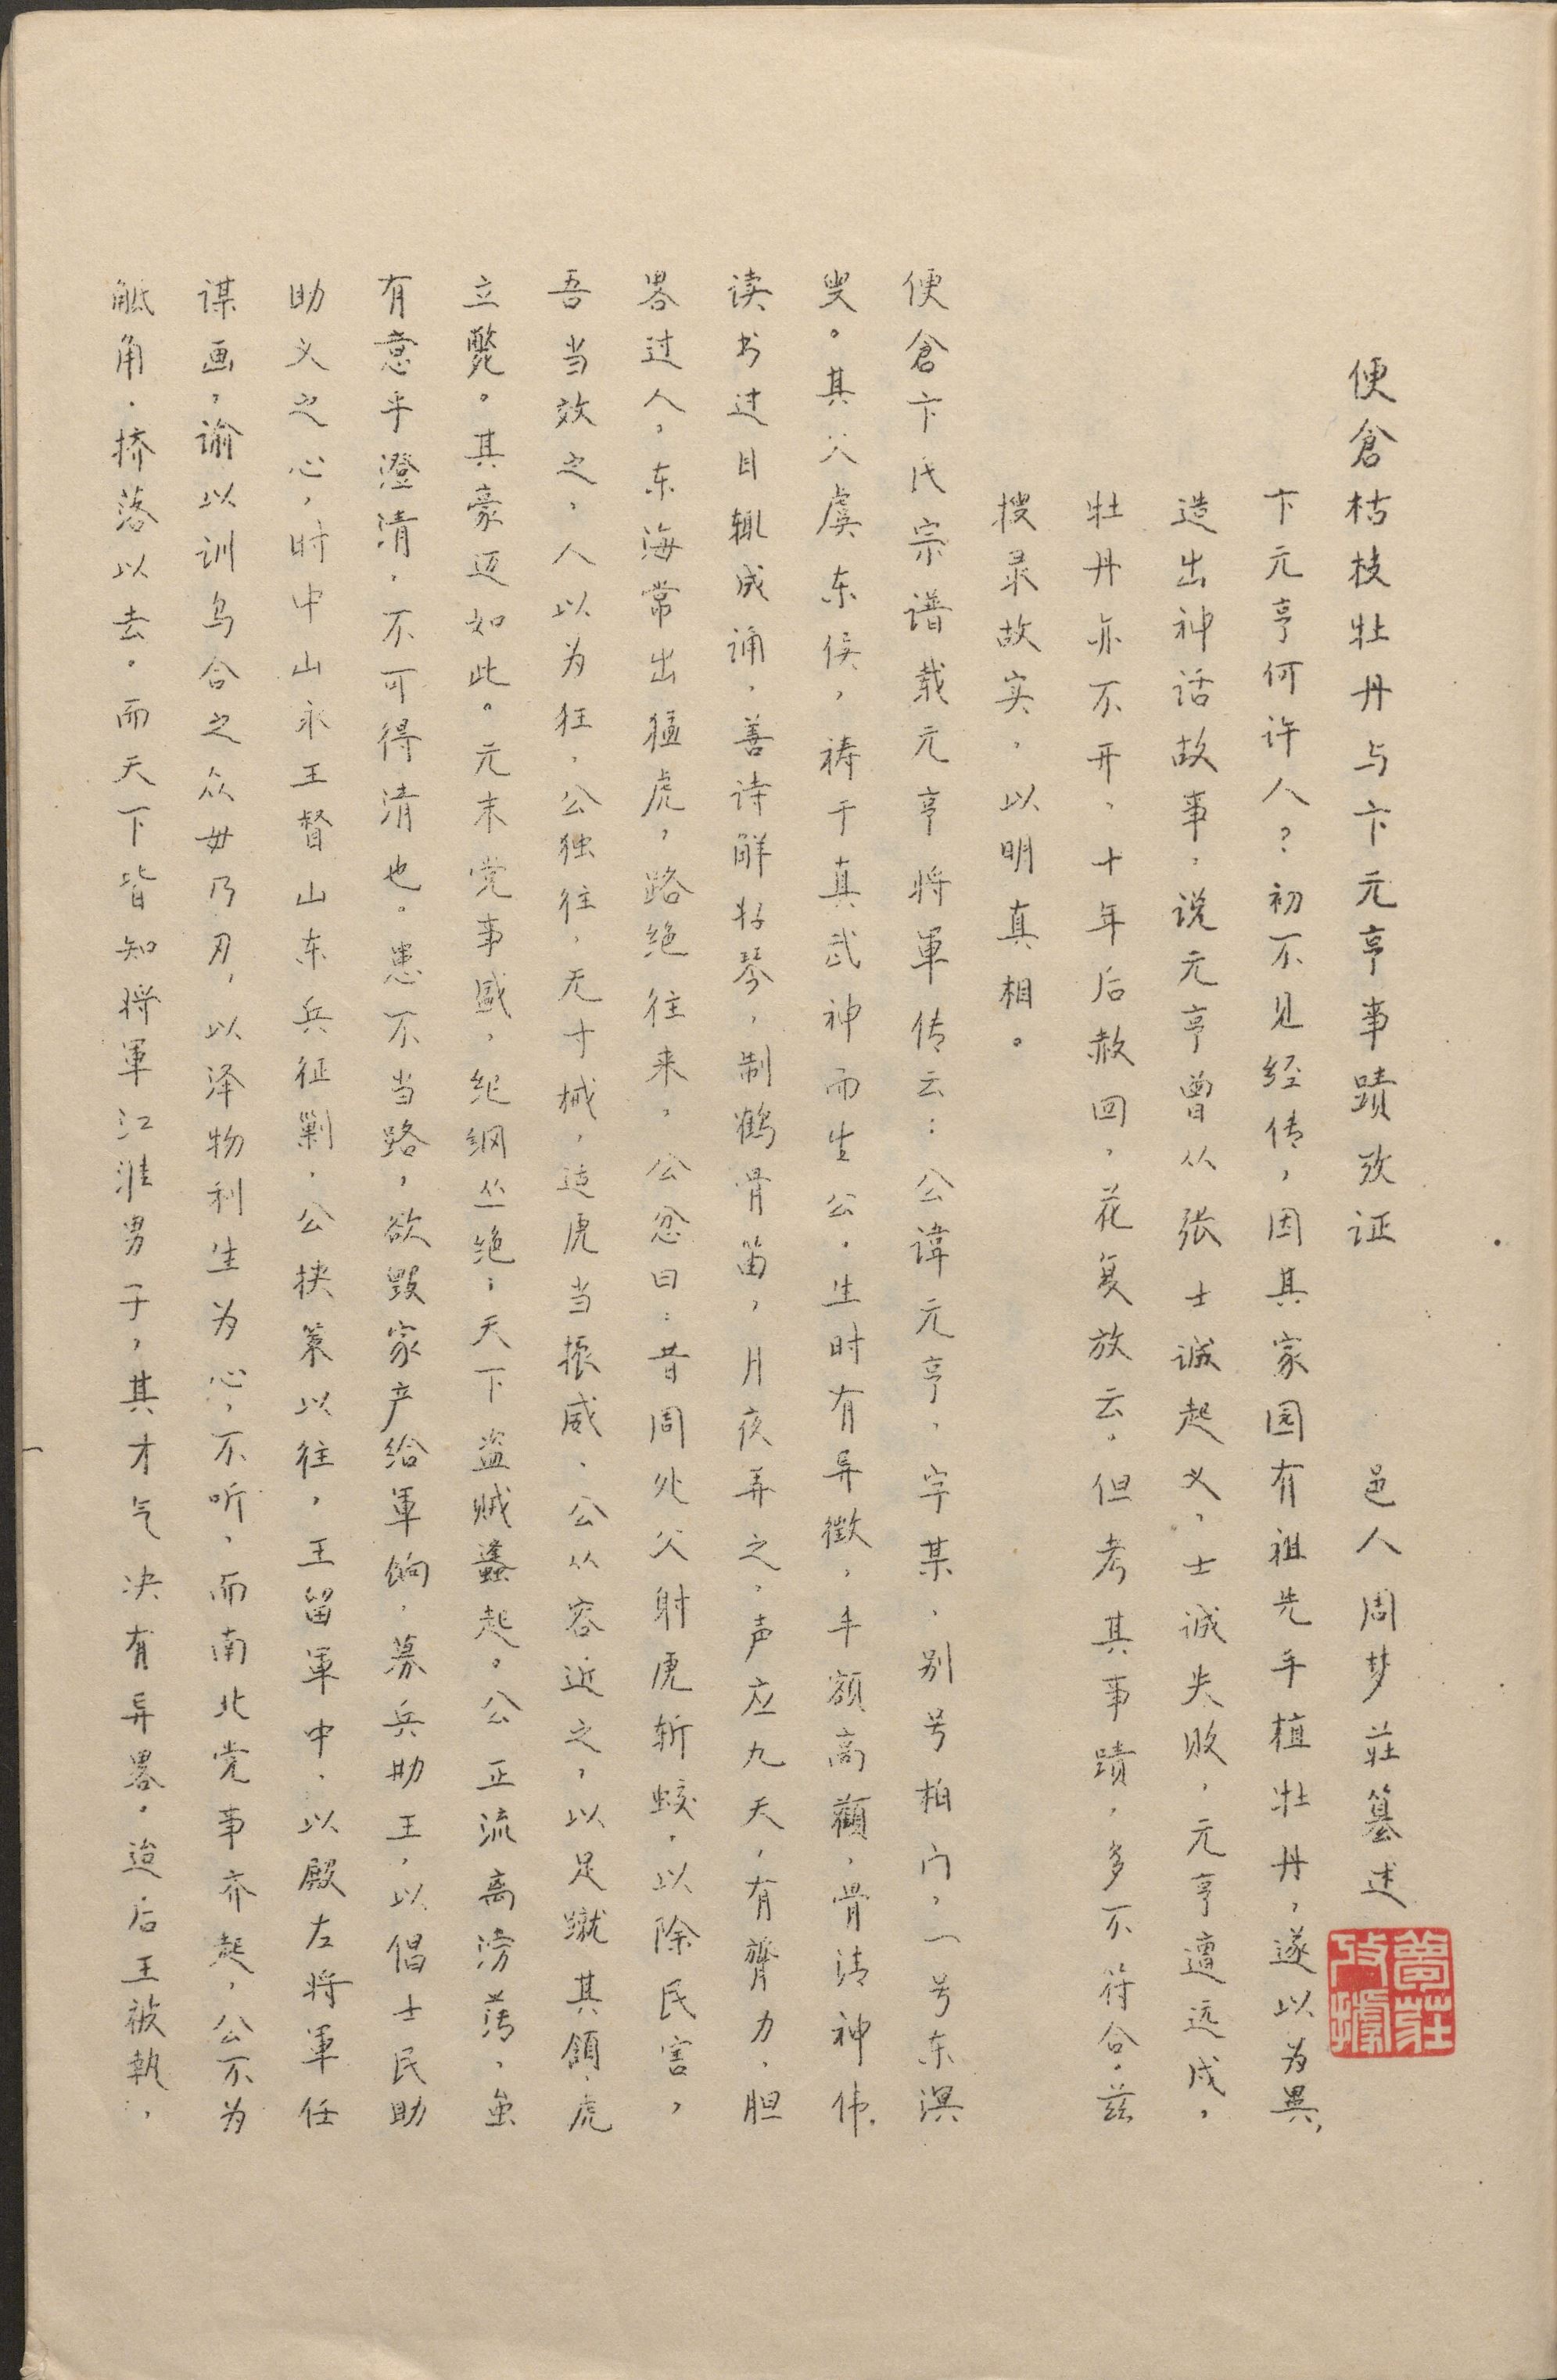 便倉枯枝牡丹与卞元亨事蹟攷证　　邑人周梦莊篹述
夢莊攷據
卞元亨何许人？初不见经传，因其家园有祖先手植牡丹，遂以为異，
造出神话故事，说元亨曾从张士诚起义，士诚失败，元亨遭远戍，
牡丹亦不开，十年后赦回，花复放云，但考其事蹟，多不符合。兹
搜录故实，以明真相。
便倉卞氏宗谱载元亨将軍传云：公諱元亨，字某，别号柏门，一号东溟
叟。其父虞东侯，祷于真武神而生公，生时有异徵，丰额高顴，骨清神伟。
读书过目辄成诵，善诗解好琴，制鹤骨笛，月夜弄之，声应九天，有膂力，胆
畧过人，东海常出猛虎，路絶往来，公忿曰：昔周处父射虎斩蛟，以除民害，
吾当效之，人以为狂，公独往，无寸械，适虎当振威，公从容近之，以足蹴其頷，虎
立斃。其豪迈如此。元末党事盛，纪纲丝绝；天下盗贼蠭起。公正流离滂薄，虽
有意乎澄清，不可得清也。患不当路，欲毁家产给軍饷，募兵勤王，以倡士民助
助义之心，时中山永王督山东兵征剿，公挟策以往，王留軍中，以殿左将軍任
谋画，谕以训乌合之众毋乃刃，以泽物利生为心，不听，而南北党事亦起，公不为
觝角，挤落以去。而天下皆知将軍江淮男子，其才气决有异畧。迨后王被執，